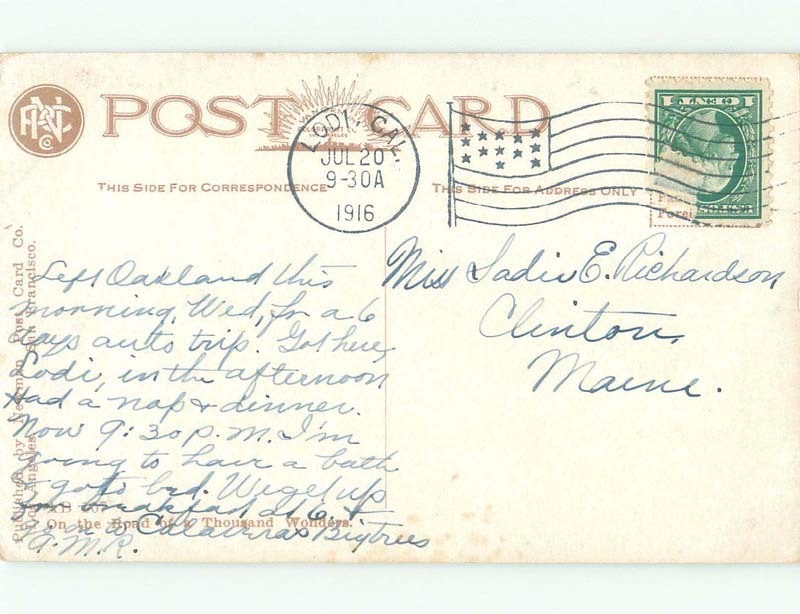 POST CARD
THIS SIDE FOR CORRESPONDENCE
THIS SIDE FOR ADDRESS ONLY
LODI, CAL.
JUL 20
9-30A
1916
1 CENT 1
Left Oakland this
morning, Wed, for a 6
days auto trip. Got here,
Lodi, in the afternoon
Had a nap & dinner.
Now 9:30 P.M. I'm
going to have a bath
& go to bed. We get up
for breakfast at 6. &
on to Calaveras Bigtrees
A.M.R.
Miss Sadie E. Richardson
Clinton,
Maine.
Published by Newman Post Card Co.
Los Angeles San Francisco.
On the Road of a Thousand Wonders.